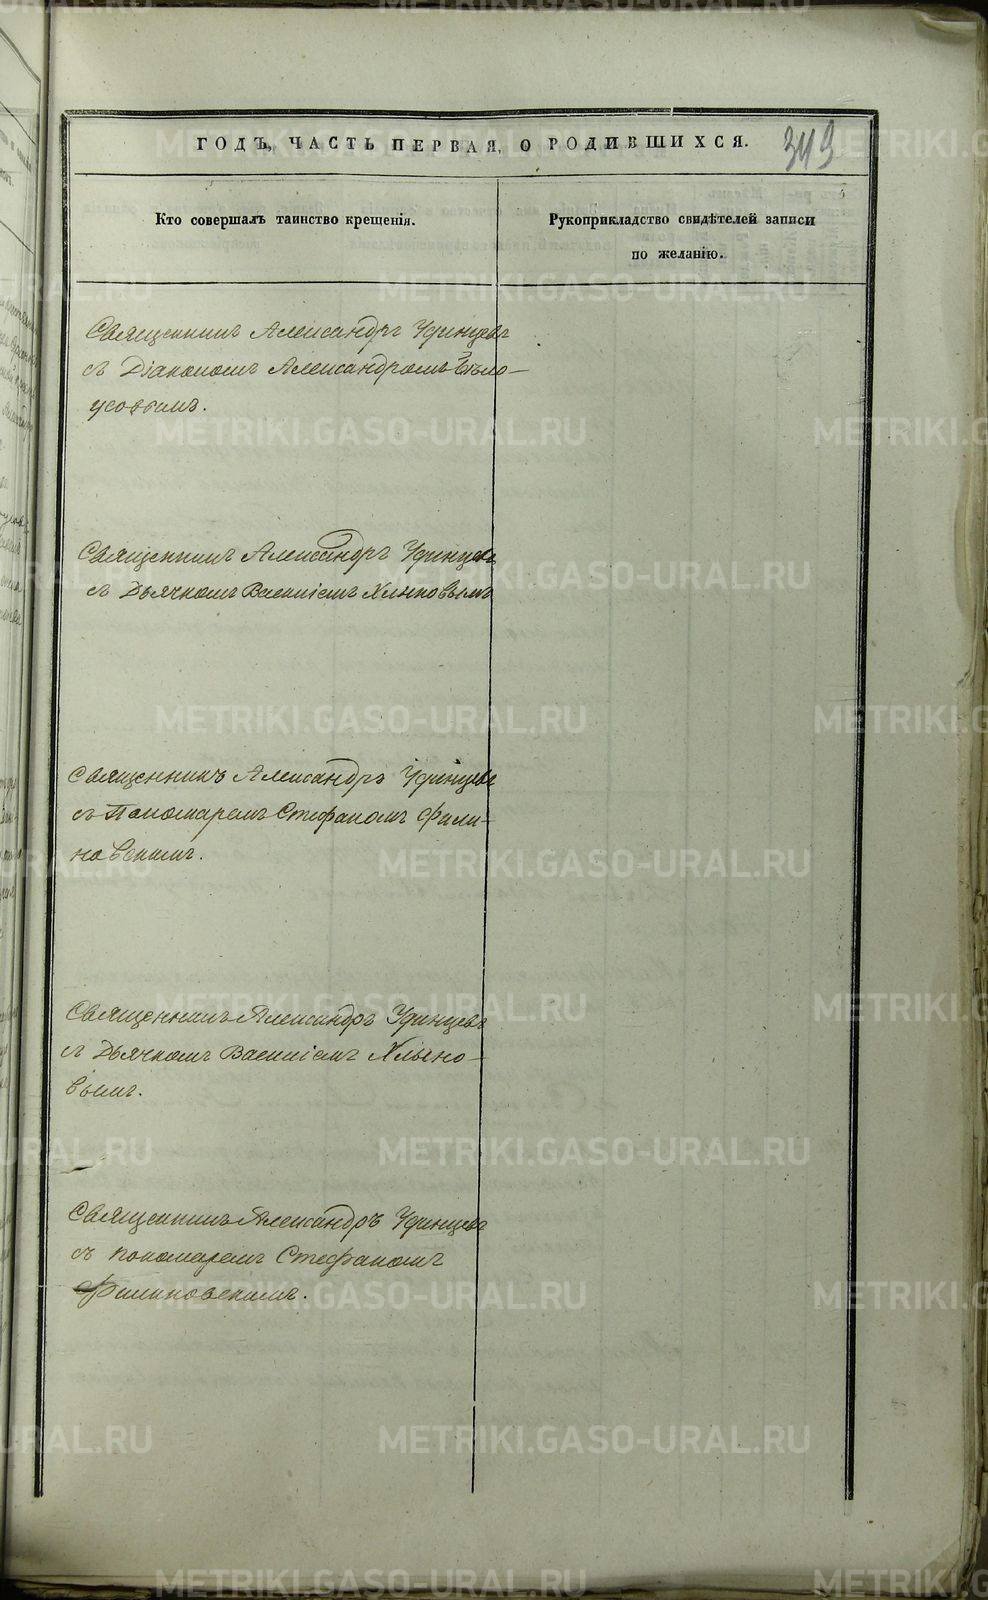 ГОДЪ, ЧАСТЬ ПЕРВАЯ, О РОДИВШИХСЯ.
349
Кто совершалъ таинство крещенія.
Рукоприкладство свидѣтелей записи
по желанію.
Священникъ Александръ Удинцевъ
съ Діакономъ Александромъ Бѣло-
усовымъ.
Священникъ Александръ Удинцевъ
съ Дьячкомъ Василіемъ Хлыновымъ
Священникъ Александръ Удинцевъ
съ Пономаремъ Стефаномъ Фили-
новскимъ.
Священникъ Александръ Удинцевъ
съ Дьячкомъ Василіемъ Хлыно-
вымъ.
Священникъ Александръ Удинцевъ
съ пономаремъ Стефаномъ
Филиновскимъ.
METRIKI.GASO-URAL.RU